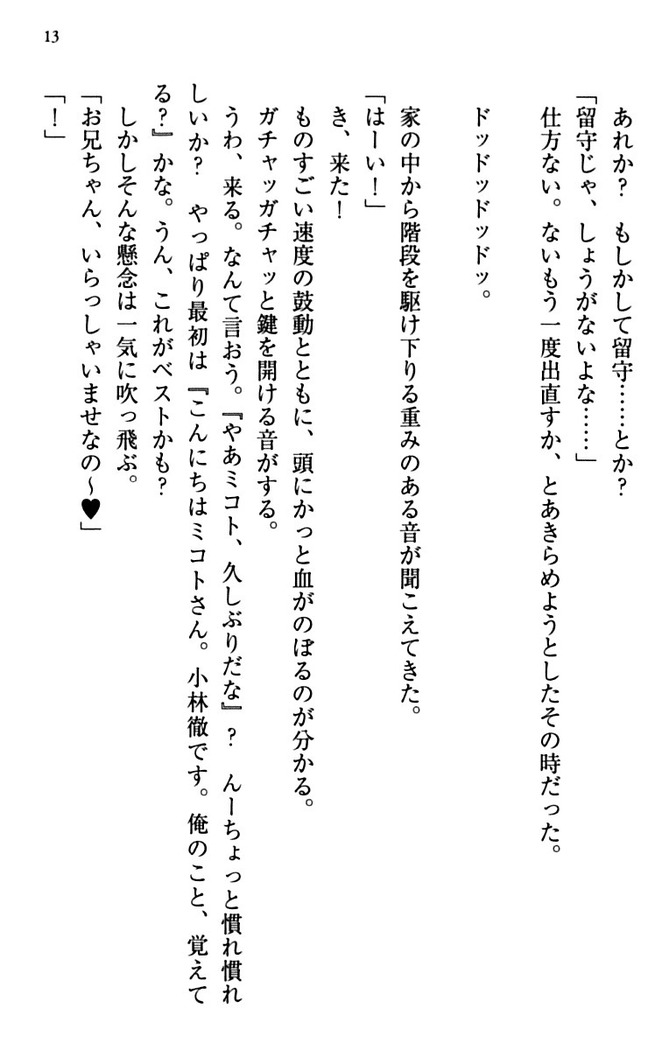 13
あれか？　もしかして留守……とか？
「留守じゃ、しょうがないよな……」
仕方ない。ないもう一度出直すか、とあきらめようとしたその時だった。
ドッドッドッドッ。
家の中から階段を駆け下りる重みのある音が聞こえてきた。
「はーい！」
き、来た！
ものすごい速度の鼓動とともに、頭にかっと血がのぼるのが分かる。
ガチャッガチャッと鍵を開ける音がする。
うわ、来る。なんて言おう。『やあミコト、久しぶりだな』？　んーちょっと慣れ慣れ
しいか？　やっぱり最初は『こんにちはミコトさん。小林徹です。俺のこと、覚えて
る？』かな。うん、これがベストかも？
しかしそんな懸念は一気に吹っ飛ぶ。
「お兄ちゃん、いらっしゃいませなの～♥」
「！」